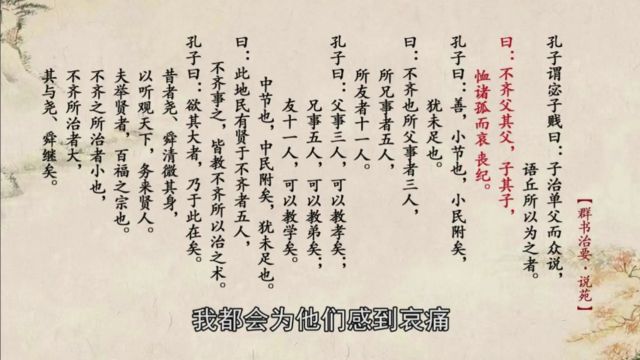 【群书治要·说苑】
孔子谓宓子贱曰：子治单父而众说，
语丘所以为之者。
曰：不齐父其父，子其子，
恤诸孤而哀丧纪。
孔子曰：善，小节也，小民附矣，
犹未足也。
曰：不齐也所父事者三人，
所兄事者五人，
所友者十一人。
孔子曰：父事三人，可以教孝矣；
兄事五人，可以教弟矣；
友十一人，可以教学矣。
中节也，中民附矣，犹未足也。
曰：此地民有贤于不齐者五人，
不齐事之，皆教不齐所以治之术。
孔子曰：欲其大者，乃于此在矣。
昔者尧、舜清微其身，
以听观天下，务来贤人。
夫举贤者，百福之宗也。
不齐之所治者小也，
不齐所治者大，
其与尧、舜继矣。
我都会为他们感到哀痛